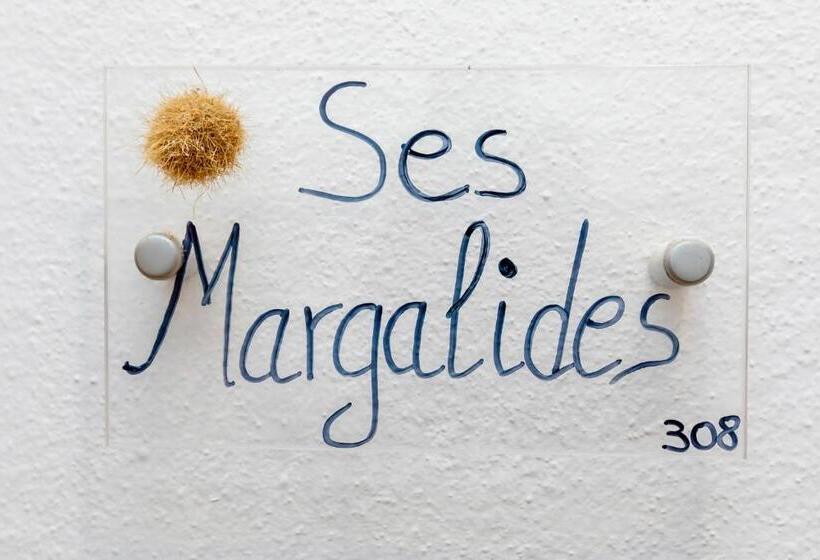 Ses
Margalides
308